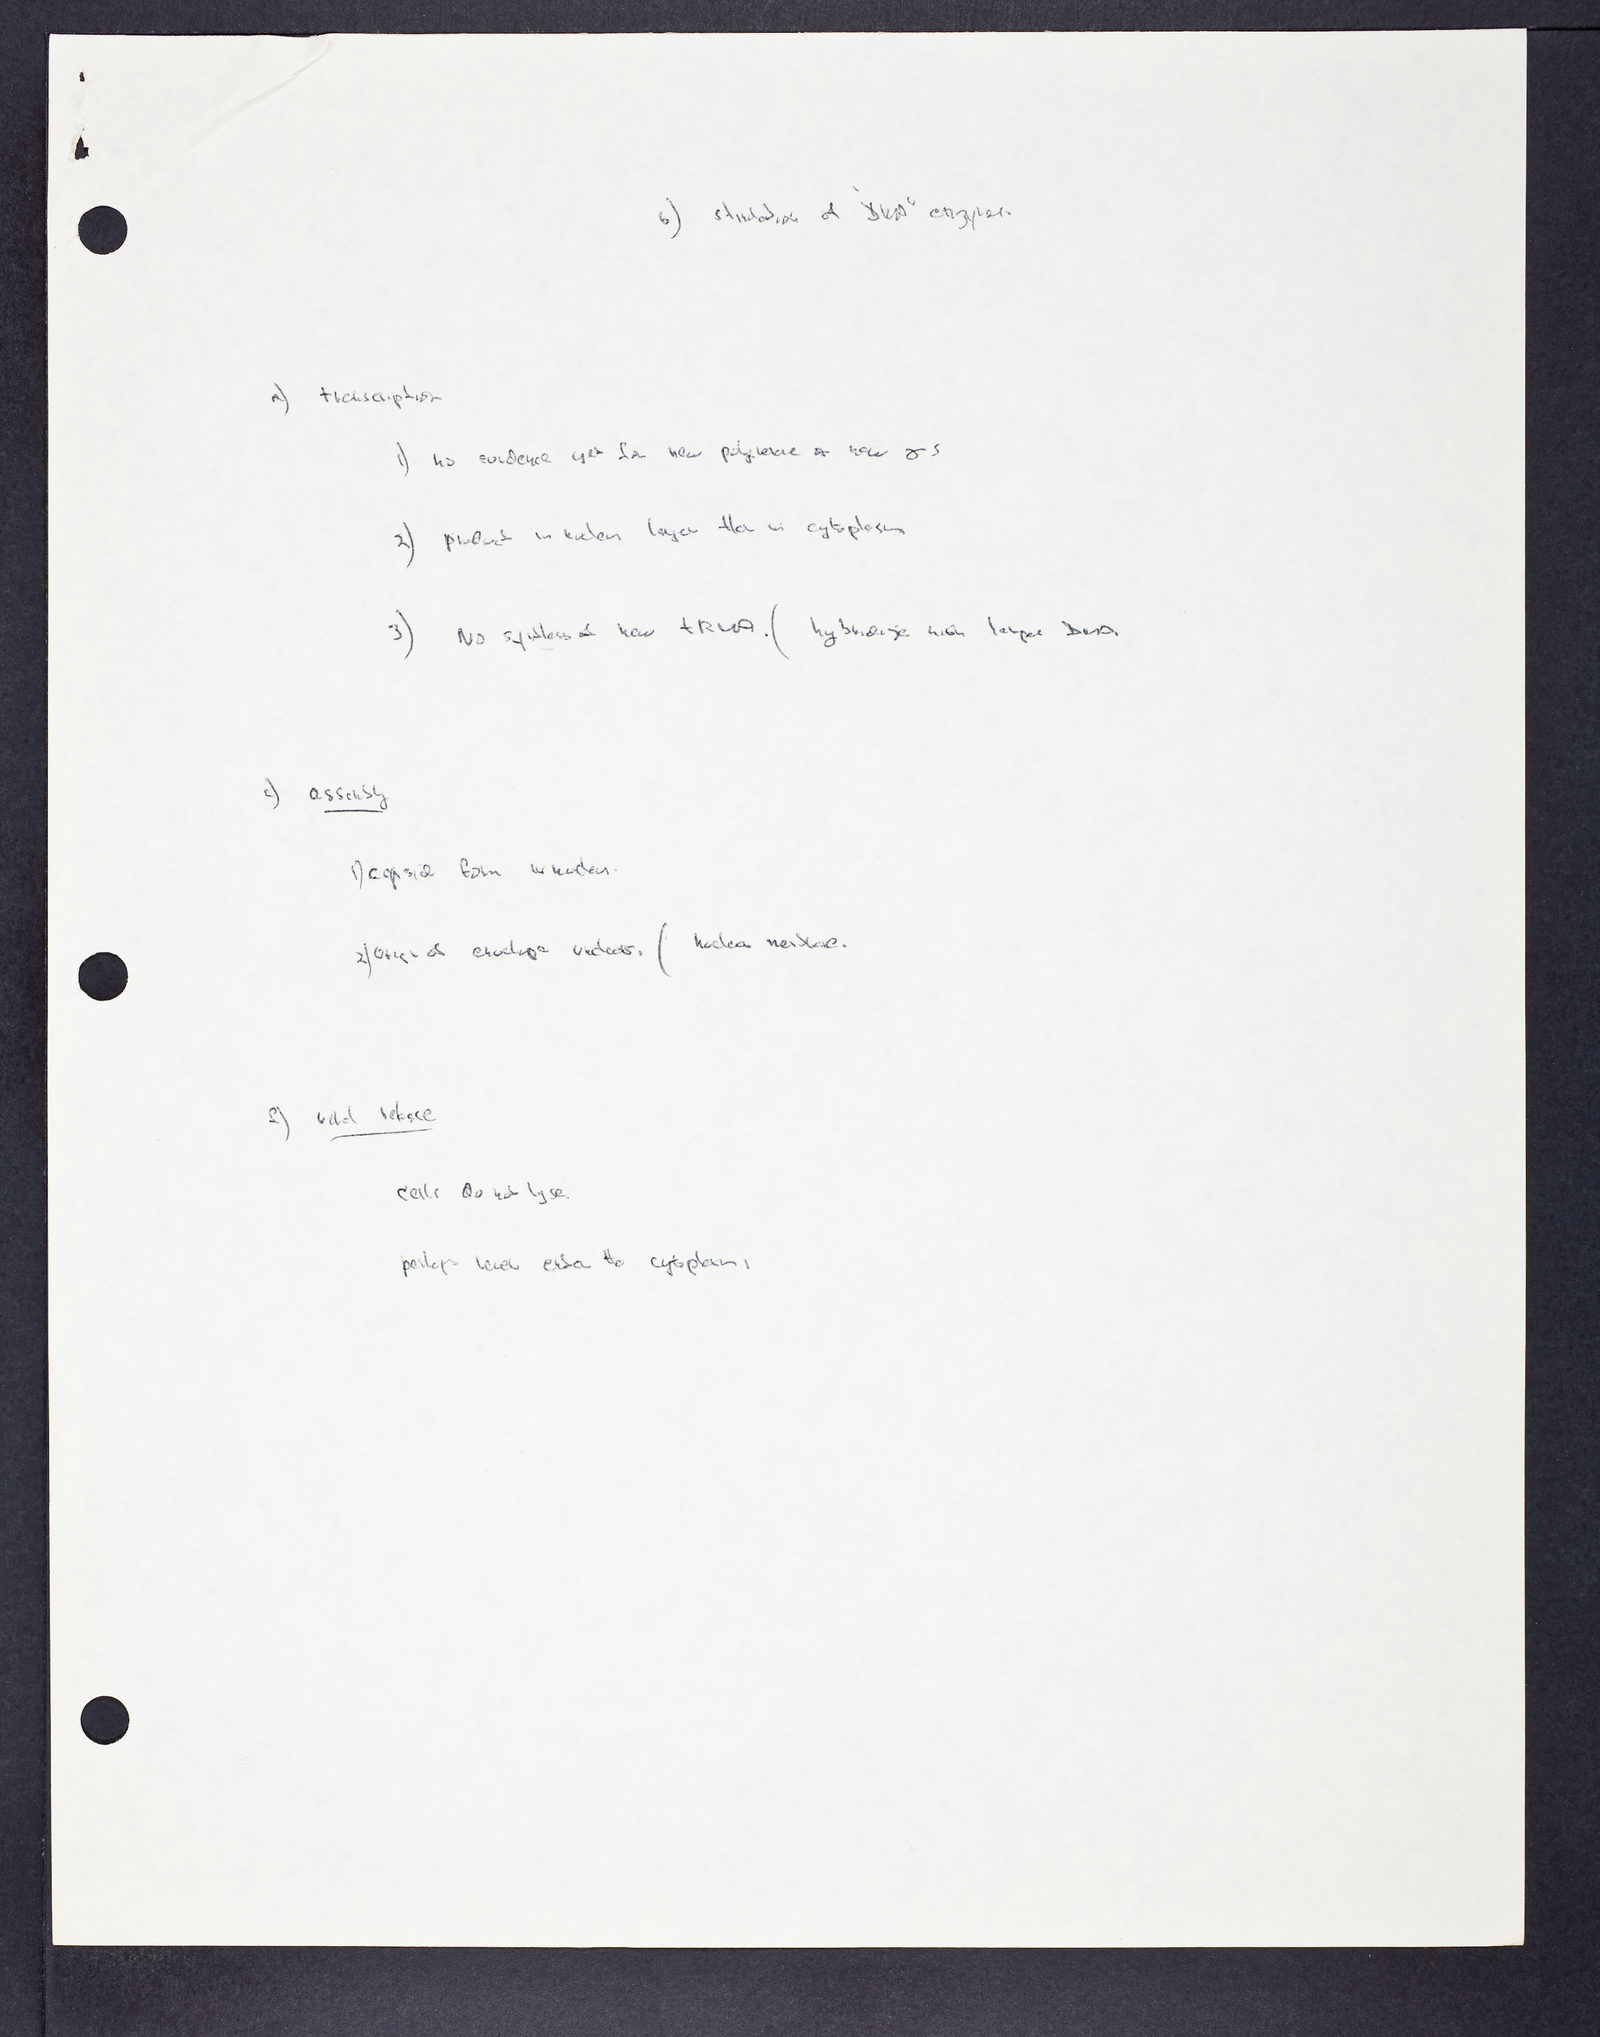 b) stimulation of "DNA" enzymes.
d) transcription
1) no evidence yet for new polymerase or new σ's
2) product in nucleus larger than in cytoplasm
3) No synthesis of new tRNA. ( hybridize with herpes DNA.
e) assembly
1) capsid form in nucleus.
2) Origin of envelope unclear. ( nuclear membrane.
f) viral release
cells do not lyse.
perhaps never enter the cytoplasm,